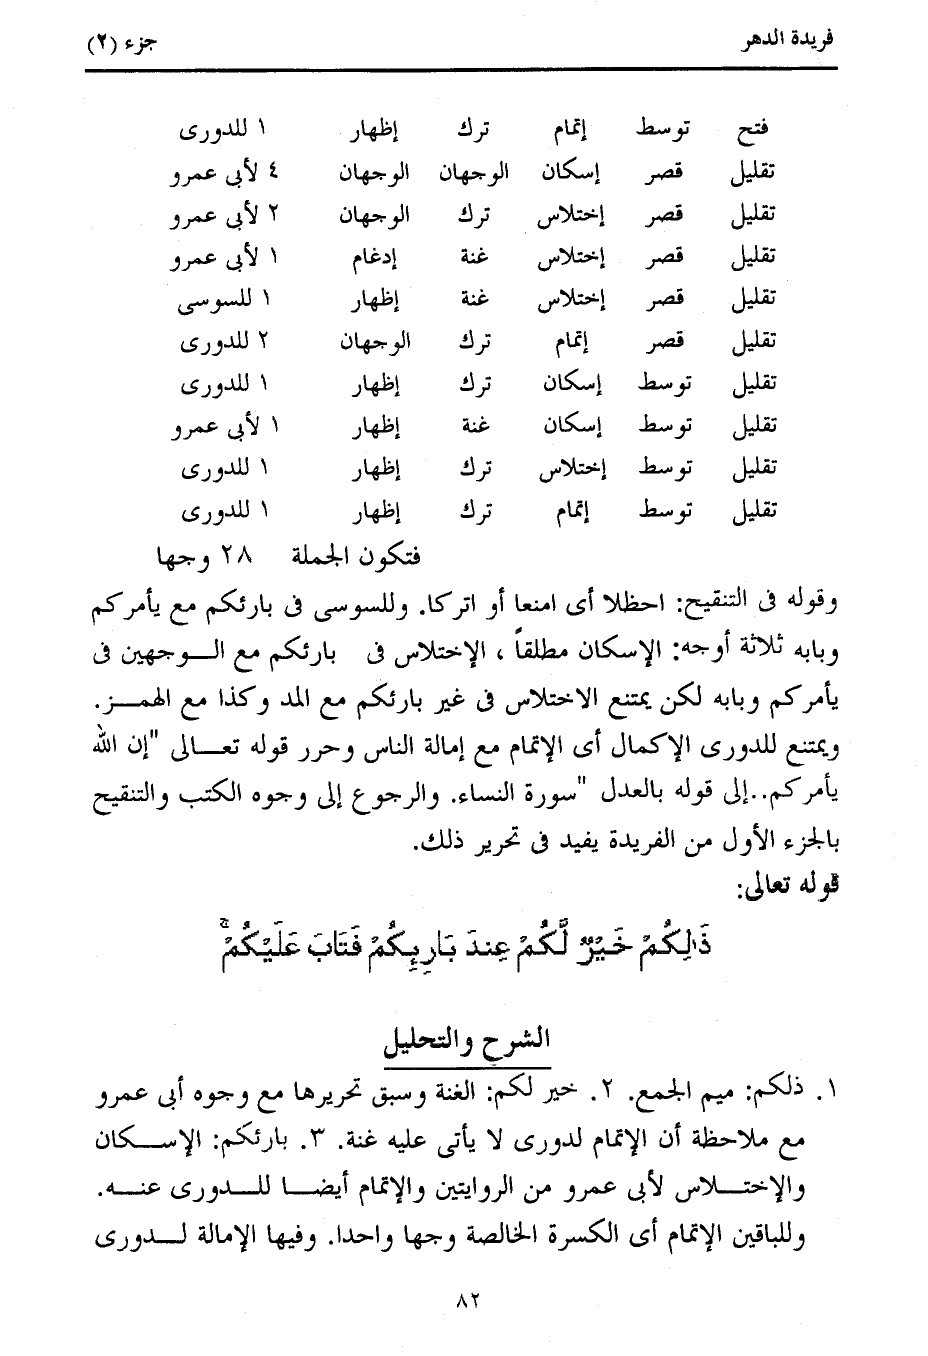 فريدة الدهر جزء (٢)
فتح توسط إتمام ترك إظهار ١ للدورى
تقليل قصر إسكان الوجهان الوجهان ٤ لأبى عمرو
تقليل قصر إختلاس ترك الوجهان ٢ لأبى عمرو
تقليل قصر إختلاس غنة إدغام ١ لأبى عمرو
تقليل قصر إختلاس غنة إظهار ١ للسوسى
تقليل قصر إتمام ترك الوجهان ٢ للدورى
تقليل توسط إسكان ترك إظهار ١ للدورى
تقليل توسط إسكان غنة إظهار ١ لأبى عمرو
تقليل توسط إختلاس ترك إظهار ١ للدورى
تقليل توسط إتمام ترك إظهار ١ للدورى
فتكون الجملة ٢٨ وجها
وقوله فى التنقيح: احظلا أى امنعا أو اتركا. وللسوسى فى بارئكم مع يأمركم
وبابه ثلاثة أوجه: الإسكان مطلقاً ، الإختلاس فى بارئكم مع الـوجهين فى
يأمركم وبابه لكن يمتنع الاختلاس فى غير بارئكم مع المد وكذا مع الهمـز.
ويمتنع للدورى الإكمال أى الإتمام مع إمالة الناس وحرر قوله تعـالى "إن الله
يأمركم..إلى قوله بالعدل "سورة النساء. والرجوع إلى وجوه الكتب والتنقيح
بالجزء الأول من الفريدة يفيد فى تحرير ذلك.
قوله تعالى:
ذَٰلِكُمْ خَيْرٌ لَّكُمْ عِندَ بَارِئِكُمْ فَتَابَ عَلَيْكُمْ ۚ
الشرح والتحليل
١. ذلكم: ميم الجمع. ٢. خير لكم: الغنة وسبق تحريرها مع وجوه أبى عمرو
مع ملاحظة أن الإتمام لدورى لا يأتى عليه غنة. ٣. بارئكم: الإسـكان
والإختـلاس لأبى عمرو من الروايتين والإتمام أيضـا للـدورى عنـه.
وللباقين الإتمام أى الكسرة الخالصة وجها واحدا. وفيها الإمالة لـدورى
٨٢